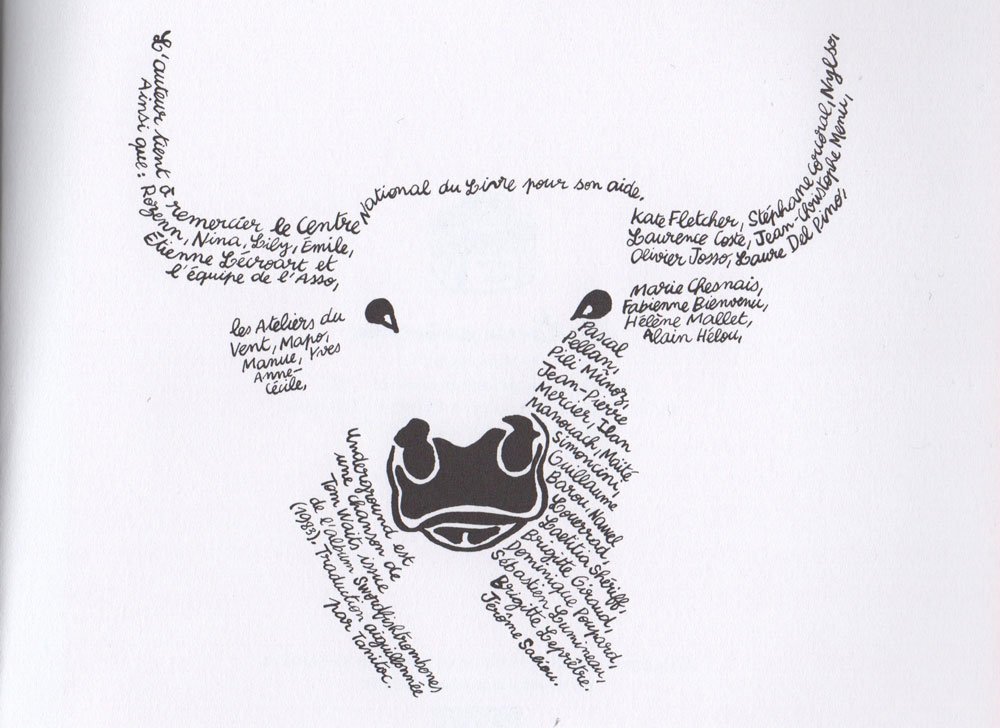 L'auteur tient à remercier le Centre
National du Livre pour son aide.
Ainsi que: Rozenn, Nina, Lily, Émile,
Étienne Lécroart et
l'équipe de l'Asso,
les Ateliers du
Vent, Mapo,
Manue, Yves
Anne-
Cécile,
Kate Fletcher, Stéphane Corcoral, Nylso,
Laurence Coste, Jean-Christophe Menu,
Olivier Josso, Laure Del Pino,
Marie Chesnais,
Fabienne Bienvenu,
Hélène Mallet,
Alain Hélou,
Pascal
Pellan,
Pili Müñoz,
Jean-Pierre
Mercier, Ilan
Manouach, Maïté
Simoncini,
Guillaume
Barou, Nawel
Louerrad,
Laetitia Shériff,
Brigitte Giraud,
Dominique Poupard,
Sébastien Lumineau,
Brigitte Leprêtre.
Jérôme Saliou.
Underground est
une chanson de
Tom Waits issue
de l'album Swordfishtrombones
(1983). Traduction aiguillennée
par Tanitoc.